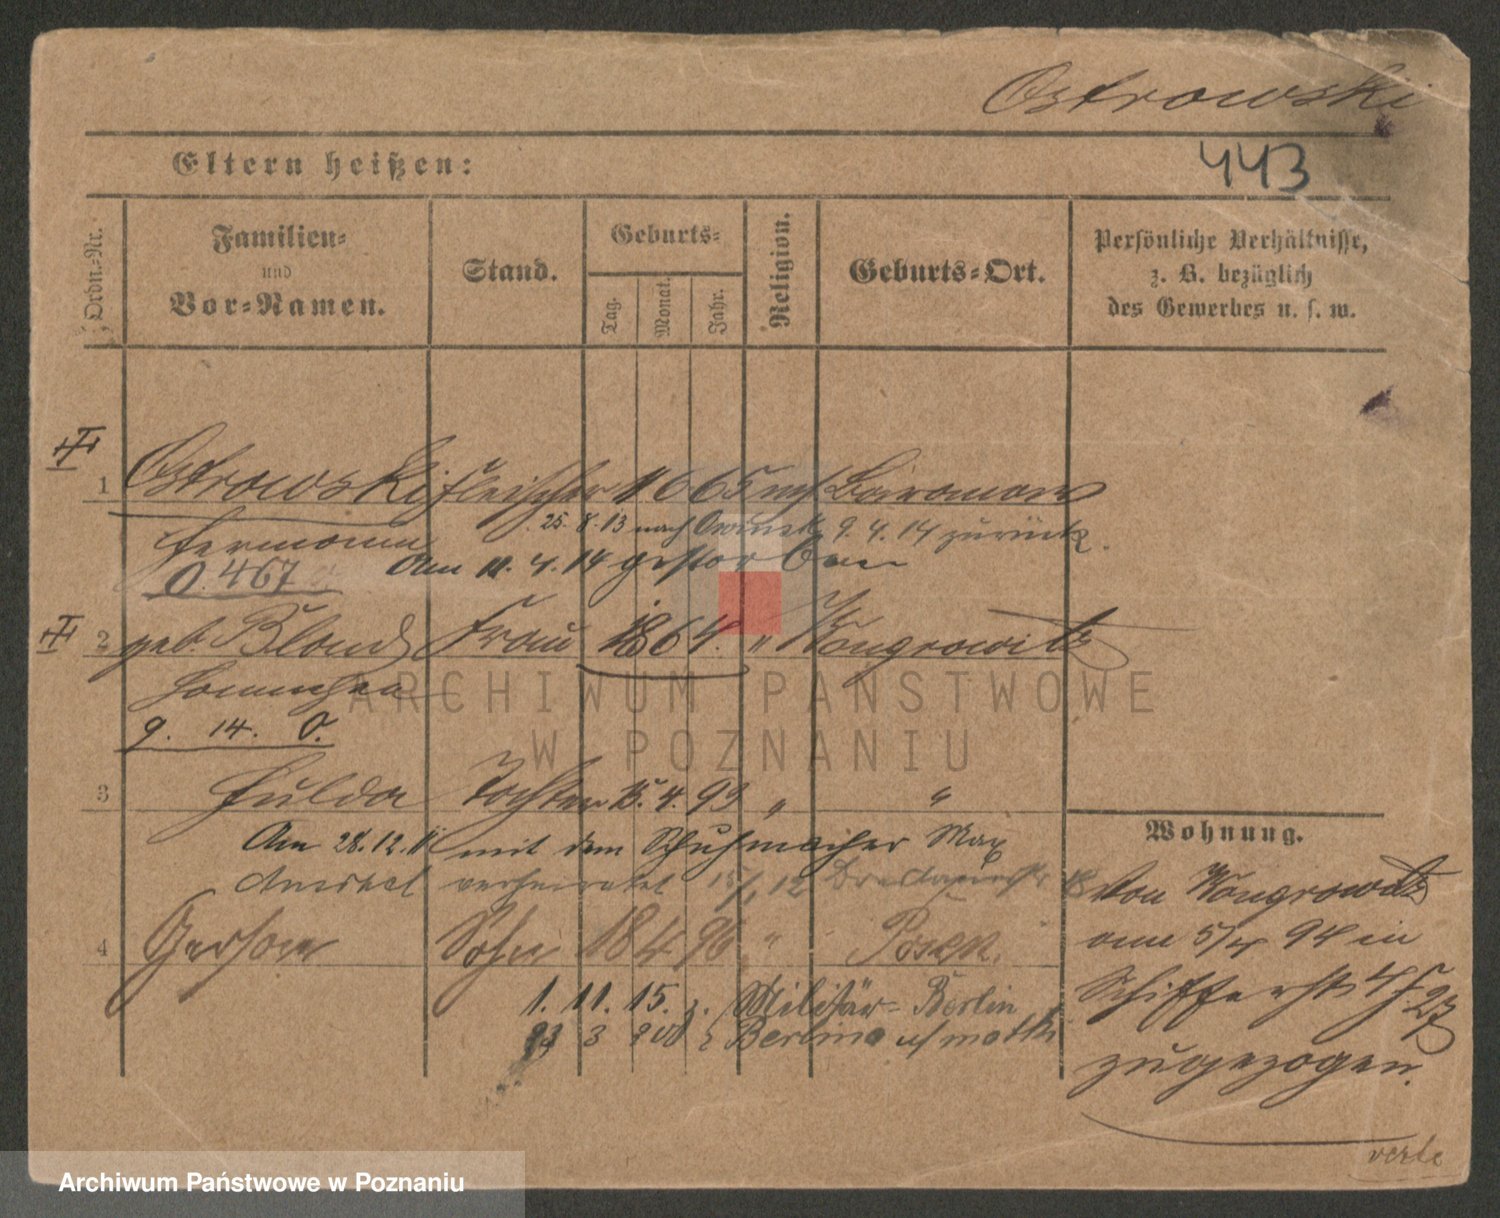 Ostrowski
443
Eltern heißen:
Ordn.-Nr.
Familien-
und
Vor-Namen.
Stand.
Geburts-
Tag.
Monat.
Jahr.
Religion.
Geburts-Ort.
Persönliche Verhältnisse,
z. B. bezüglich
des Gewerbes u. s. w.
1 Ostrowski Fleischer 11 6 65 mos
25. 8. 13 nach Owinsk 9. 4. 14 zurück.
Hermann
O. 467 Am 11. 4. 14 gestorben
2 geb. Bland Frau 1864. " Wongrowitz
9. 14. O.
ARCHIWUM PAŃSTWOWE
W POZNANIU
3 Hulda Tochter 15. 4. 93 " "
Am 28. 12. 11 mit dem Schuhmacher Max
verheiratet 15/1 12
4 Gerson Sohn 18 4 96 " Posen.
1. 11. 15. z. Militär- Berlin
3 Berlina
Wohnung.
Von Wongrowitz
am 5/4 94 in
Schifferstr 4
zugezogen.
verte
Archiwum Państwowe w Poznaniu